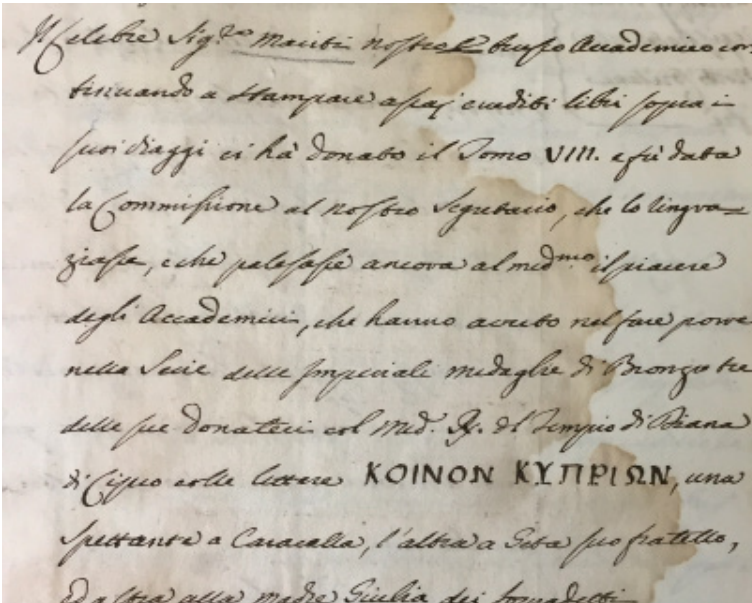 Il Celebre Sig.re Mariti nostro Accademico con
tinuando a stampare assaj eruditi libri sopra i
suoi viaggi ci hà donato il Tomo VIII. e fù data
la Commissione al nostro Segretario, che lo ringra=
ziasse, e che palesasse ancora al med.mo il piacere
degli Accademici, che hanno avuto nel fare porre
nella Serie delle Imperiali medaglie di Bronzo tre
delle sue donateci col med. R. del Tempio di Diana
di Cipro colle lettere ΚΟΙΝΟΝ ΚΥΠΡΙΩΝ, una
spettante a Caracalla, l'altra a Geta suo fratello,
ed altra alla madre Giulia dei